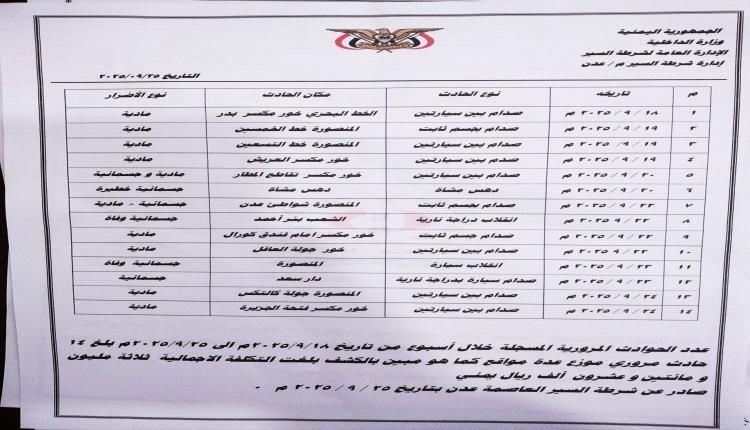 الجمهورية اليمنية
وزارة الداخلية
الإدارة العامة لشرطة السير
إدارة شرطة السير م/ عدن
التاريخ ٢٠٢٥/٠٩/٢٥
م تاريخه نوع الحادث مكان الحادث نوع الأضرار
١ ١٨ / ٩ / ٢٠٢٥ م صدام بين سيارتين الخط البحري خور مكسر بدر مادية
٢ ١٩ / ٩ / ٢٠٢٥ م صدام بجسم ثابت المنصورة خط الخمسين مادية
٣ ١٩ / ٩ / ٢٠٢٥ م صدام بين سيارتين المنصورة خط التسعين مادية
٤ ١٩ / ٩ / ٢٠٢٥ م صدام بين سيارتين خور مكسر العريش مادية
٥ ٢٠ / ٩ / ٢٠٢٥ م صدام بين سيارتين خور مكسر تقاطع المطار مادية و جسمانية
٦ ٢٠ / ٩ / ٢٠٢٥ م دهس مشاة دهس مشاة جسمانية خطيرة
٧ ٢٢ / ٩ / ٢٠٢٥ م صدام بجسم ثابت المنصورة شواطئ عدن جسمانية - مادية
٨ ٢٢ / ٩ / ٢٠٢٥ م انقلاب دراجة نارية الشعب بئر أحمد جسمانية وفاة
٩ ٢٢ / ٩ / ٢٠٢٥ م صدام جسم ثابت خور مكسر امام فندق كورال مادية
١٠ ٢٢ / ٩ ٢٠٢٥ م صدام بين سيارتين خور جولة العاقل مادية
١١ ٢٣ / ٩ / ٢٠٢٥ م انقلاب سيارة المنصورة جسمانية وفاة
١٢ ٢٣ / ٩ / ٢٠٢٥ م صدام سيارة بدراجة نارية دار سعد جسمانية
١٣ ٢٤ / ٩ / ٢٠٢٥ م صدام بين سيارتين المنصورة جولة كالتكس مادية
١٤ ٢٤ / ٩ / ٢٠٢٥ م صدام بين سيارتين خور مكسر فتحة الجزيرة مادية
عدد الحوادث المرورية المسجلة خلال أسبوع من تاريخ ٢٠٢٥/٩/١٨م الى ٢٠٢٥/٩/٢٥م بلغ ١٤
حادث مروري موزع عدة مواقع كما هو مبين بالكشف بلغت التكلفة الاجمالية ثلاثة مليون
و مائتين و عشرون ألف ريال يمني
صادر عن شرطة السير العاصمة عدن بتاريخ ٢٥ / ٩ / ٢٠٢٥ م .